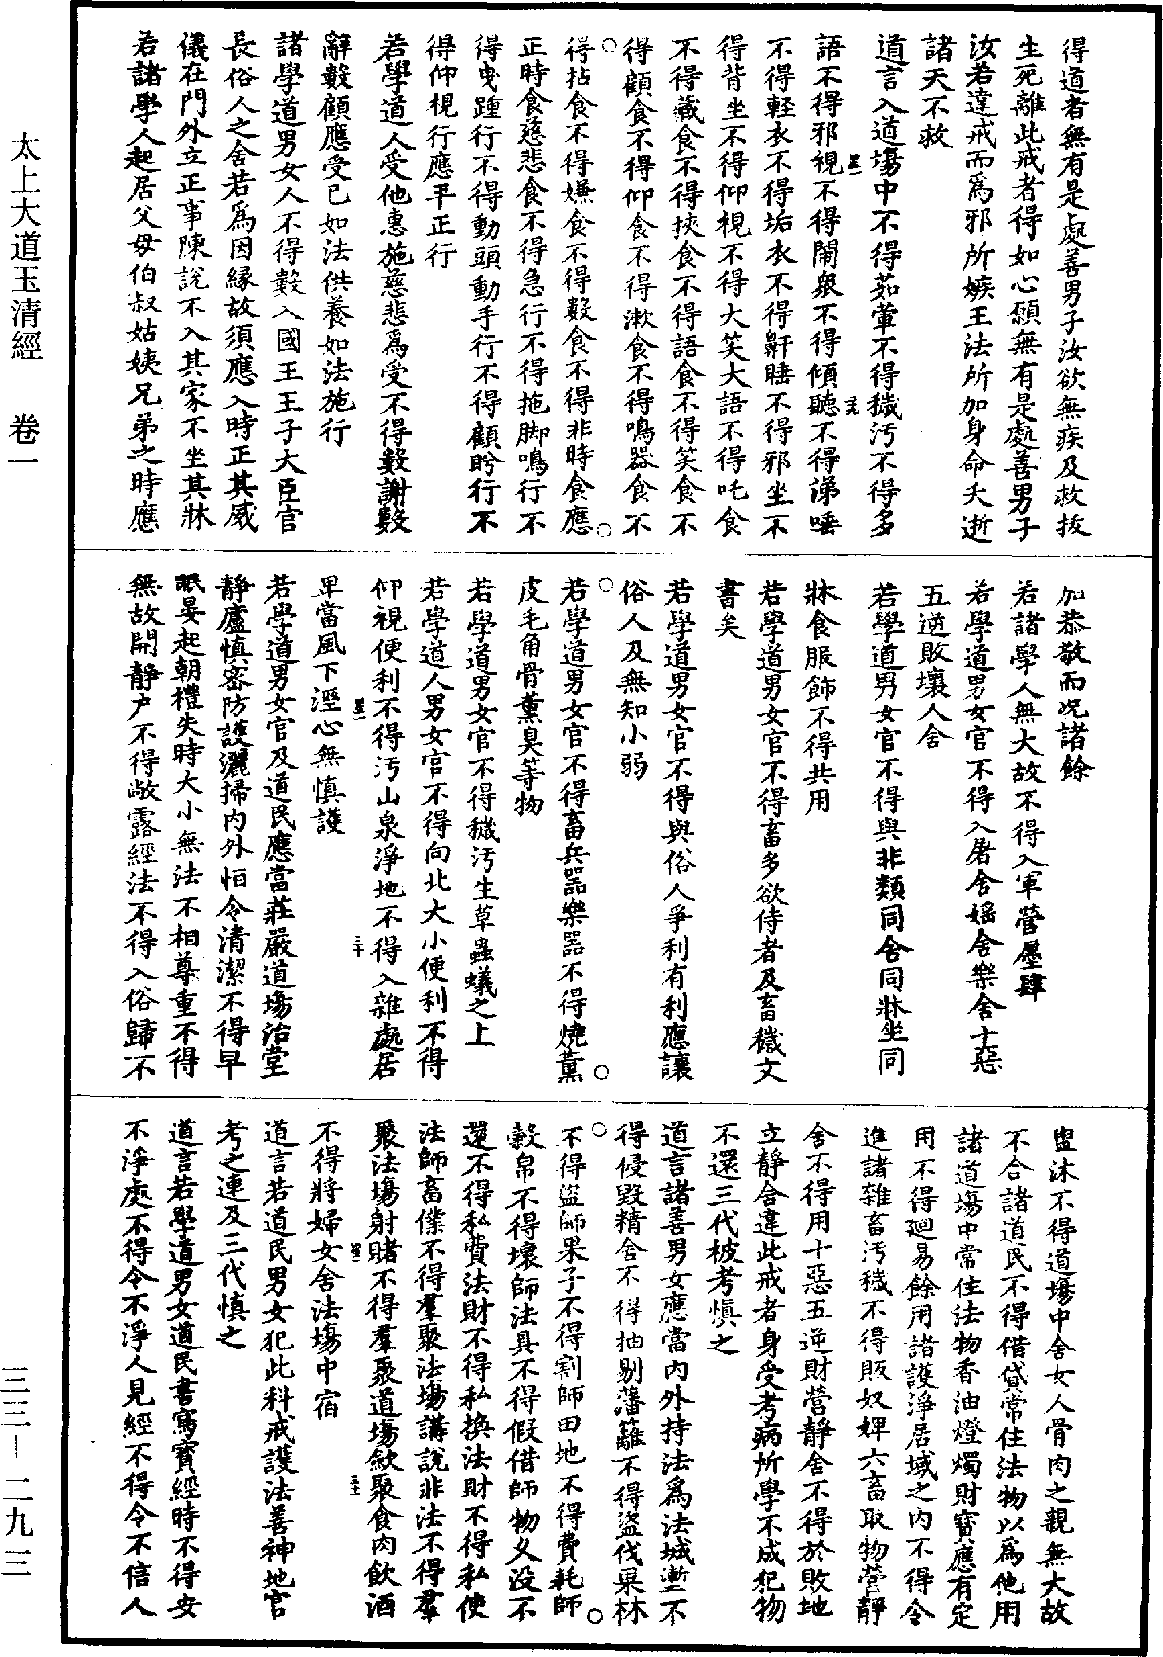 得道者無有是處善男子汝欲無疾及救拔
生死離此戒者得如心願無有是處善男子
汝若違戒而為邪所嫉王法所加身命夭逝
諸天不救
道言入道場中不得茹葷不得穢污不得多
語不得邪視不得鬧眾不得傾聽不得涕唾
不得輕衣不得垢衣不得鼾睡不得邪坐不
得背坐不得仰視不得大笑大語不得吒食
不得藏食不得挾食不得語食不得笑食不
得顧食不得仰食不得漱食不得鳴器食不
得拈食不得嫌食不得數食不得非時食應
正時食慈悲食不得急行不得拖脚鳴行不
得曳踵行不得動頭動手行不得顧盻行不
得仰視行應平正行
若學道人受他惠施慈悲為受不得數謝數
辭數顧應受已如法供養如法施行
諸學道男女人不得數入國王王子大臣官
長俗人之舍若為因緣故須應入時正其威
儀在門外立正事陳說不入其家不坐其牀
若諸學人起居父母伯叔姑姨兄弟之時應
加恭敬而况諸餘
若諸學人無大故不得入軍營屋肆
若學道男女官不得入屠舍婬舍樂舍十惡
五逆敗壞人舍
若學道男女官不得與非類同舍同牀坐同
牀食服飾不得共用
若學道男女官不得畜多欲侍者及畜穢文
書矣
若學道男女官不得與俗人爭利有利應讓
俗人及無知小弱
若學道男女官不得畜兵器樂器不得燒薰
皮毛角骨薰臭等物
若學道男女官不得穢污生草蟲蟻之上
若學道人男女官不得向北大小便利不得
仰視便利不得污山泉淨地不得入雜處居
早當風下溼心無慎護
若學道男女官及道民應當莊嚴道場治堂
靜廬慎密防護灑掃内外恒令清潔不得早
眠晏起朝禮失時大小無法不相尊重不得
無故開靜户不得敞露經法不得入俗歸不
盥沐不得道場中舍女人骨肉之親無大故
不合諸道民不得借貸常住法物以為他用
諸道場中常住法物香油燈燭財寶應有定
用不得廻易餘用諸護淨居域之内不得令
進諸雜畜污穢不得販奴婢六畜取物營靜
舍不得用十惡五逆財營靜舍不得於敗地
立靜舍違此戒者身受考病所學不成犯物
不還三代被考慎之
道言諸善男女應當内外持法為法城塹不
得侵毀精舍不得抽剔藩籬不得盜伐果林
不得盜師果子不得割師田地不得費耗師
穀帛不得壞師法具不得假借師物久没不
還不得私費法財不得私換法財不得私使
法師畜僕不得羣聚法場講說非法不得羣
聚法場射賭不得羣聚道場歛聚食肉飲酒
不得將婦女舍法場中宿
道言若道民男女犯此科戒護法善神地官
考之連及三代慎之
道言若學道男女道民書寫寶經時不得安
不淨處不得令不淨人見經不得令不信人
太上大道玉清經　卷一
三三—二九三